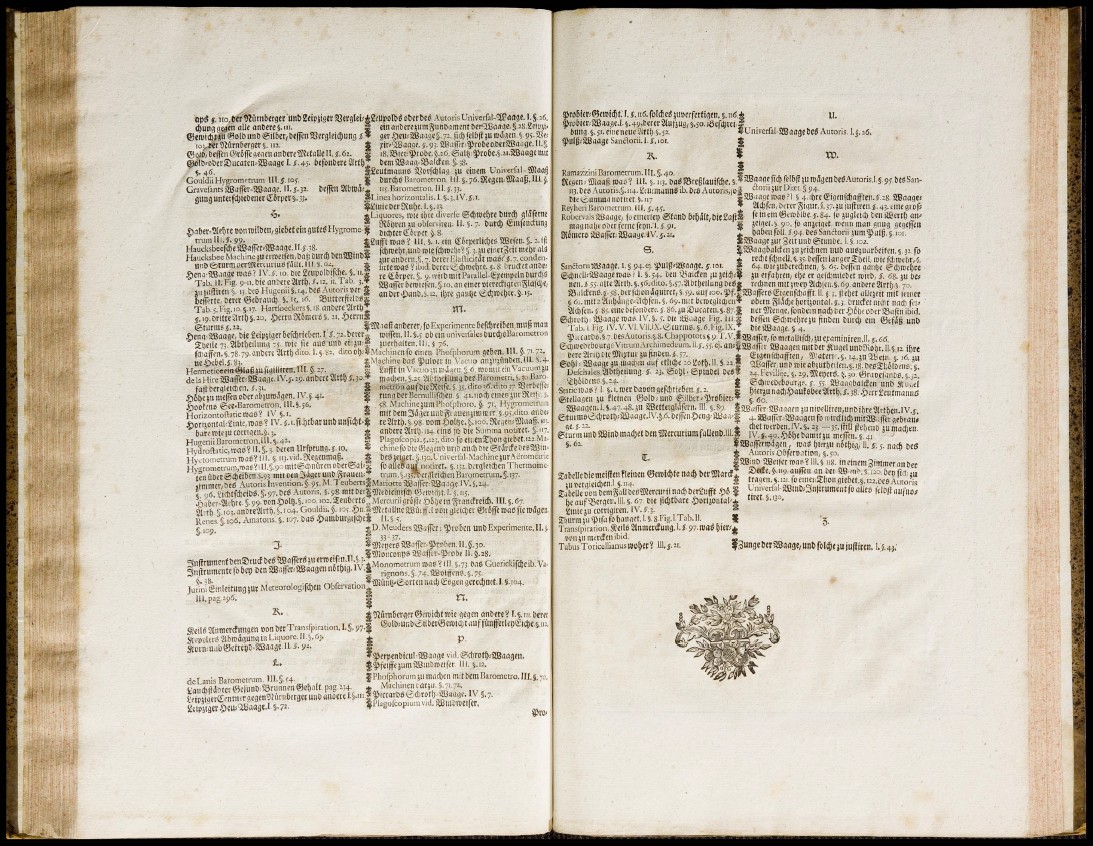 ops §. 110. der Nürnberger und Leipziger Verglei-
chung gegen alle andere §. 111.
Gewicht zu Gold und Silber, dessen Vergleichung §.
103. der Nürnberger §. 112.
Gold, dessen Grösse gegen andere Metalle II. §. 62.
Gold- oder Ducaten-Waage I. §. 45. besondere Arth
§. 46.
Gouldii Hygrometrum III. §. 105.
Gravesants Wasser-Waage. II. §. 32. dessen Abwä-
gung unterschiedener Cörper §. 33.
H.
Haber-Aehre von wilden, giebet ein gutes Hygrome-
trum III. §. 99.
Hauksbeesche Wasser-Waage. II. §. 38.
Hauksbees Machine zu erweisen, daß durch den Wind
und Sturm der Mercurius fällt. III. §. 62.
Heng-Waage was? IV. §. 10. die Leupoldische. §. 11.
Tab. II. Fig. 9-11. die andere Arth. §. 12. it. Tab. 3.
zu justiren §. 13. des Hugenii §. 14. des Autoris ver-
besserte, derer Gebrauch §. 15, 16. Butterfields
Tab. 5. Fig. 10. §. 17. Hartsoeckers §. 18 andere Arth
§. 19. dritte Arth §. 20. Herrn Römers §. 21. Herrn
Sturms §. 22.
Heng-Waage, die Leipziger beschrieben. I. §. 72. derer
Theile 73. Abtheilung 75. wie sie aus und ein zu-
schaffen. §. 78. 79. andere Arth dito. I. §. 82. dito oh-
ne Hebel §. 83.
Hermetice ein Glaß zu sigilliren. III. §. 27.
de la Hire Wasser-Waage. IV. §. 29. andere Arth §. 30.
fast dergleichen. §. 31.
Höhe zu messen oder abzuwägen. IV. §. 41.
Hookens See-Barometron. III. §. 50.
Horizontostatic was? IV §. 1.
Horizontal-Linie, was? IV. §. 1. sichtbar und unsicht-
bare wie zu corrigen. §. 3.
Hugenii Barometron. III. §. 42.
Hydrostatic, was? II. §. 3. deren Ursprung. §. 10.
Hyetometrum was? III. §. 113. vid. Regenmaß.
Hygrometrum, was? III. §. 90 mit Schnüren oder Sai-
ten über Scheiben §. 93 mit den Jäger und Frauen-
zimmer, des Autoris Invention. §. 95. M. Teuberts
§. 96. Lichtscheids. §. 97. des Autoris. §. 98 mit der
Haber-Aehre. §. 99. von Holtz. §. 100. 102. Teuberts
Arth §. 103. andre Arth. §. 104. Gouldii. §. 105. Hn.
Renes §. 106. Amatons. §. 107. das Hamburgische
§. 109.
J.
Instrument den Druck des Wassers zu erweisen. II. §. 7.
Instrumente so bey den Wasser-Waagen nöthig. IV.
§. 38.
Jurini Einleitung zur Meteorologischen Observation
III. pag. 296.
K.
Keils Anmerckungen von der Transpiration. I. §. 97.
Keplers Abwägung in Liquore. II. §. 69.
Korn- und Getreyd-Waage. II. §. 92.
L.
de Lanis Barometrum. III. §. 14.
Lauchstädter Gesund-Brunnen Gehalt. pag. 234.
Leipziger Centner gegen Nürnberger und andere I. §. 111
Leipziger Heu-Waage. I. §. 72.
Leupolds oder des Autoris Universal-Waage. I. §. 26.
ein andere zum Fundament der Waage. §. 28 Leipzi-
ger Heu-Waage §. 72. sich selbst zu wägen. §. 95. Ve-
xir-Waage. §. 93. Wasser-Probe oder Waage. II. §.
18. Bier-Probe. §. 26. Saltz-Probe. §. 21. Waage mit
dem Waag-Balcken. §. 28.
Leutmanns Vorschlag zu einem Universal-Maaß
durchs Barometron. III. §. 76. Regen-Maaß. III. §.
115. Barometron. III. §. 33.
Linea horizontalis. I. §. 3. IV. §. 1.
Linie der Ruhe. I. §. 13.
Liquores, wie ihre diverse Schwehre durch gläserne
Röhren zu observiren. II. §. 7. durch Einsenckung
dichter Cörper. §. 8.
Lufft was? III. §. 1. ein Cörperliches Wesen. §. 2. ist
schwehr und wie schwehr? §. 3. zu einer Zeit mehr als
zur andern. §. 7. derer Elasticität was? §. 7. conden-
sirte was? ibid. derer Schwehre. §. 8 drucket ande-
re Cörper. §. 9. wird mit Parallel-Exempeln durchs
Wasser bewiesen. §. 10. an einer viereckigten Flasche,
an der Hand. §. 12. ihre gantze Schwehre. §. 15.
M.
Maaß anderer, so Experimente beschreiben muß man
wissen. III. §. 75. ob ein universales durchs Barometron
zuerhalten. III. §. 76.
Machinen so einen Phosphorum geben. III. §. 71. 72.
Machine das Pulver in Vacuo anzuzünden. III. §. 4.
Lufft in Vacuo zu wägen §. 6. womit ein Vacuum zu
machen. §. 25. Abtheilung des Barometri, §. 30. Baro-
metron auf die Reise. §. 35. dito §. 36. dito 37 Verbesse-
rung der Bernullischen §. 41. noch eines zur Reise. §.
58. Machine zum Phosphoro. §. 71. Hygrometrum
mit dem Jäger und Frauenzimmer §. 95. dito ande-
re Arth. §. 98. vom Holtze. §. 100. Regen-Maaß. 111.
andere Arth. 114. eins so die Summa notiret. §. 117.
Plagoscopia. §. 123. dito so einen Thon giebet. 122. Ma-
chine so die Gegend und auch die Stärcke des Win-
des zeiget. §. 130. Universal-Machine zur Aërometrie
so alles auf notiret. §. 132. dergleichen Thermome-
trum. §. 135. dergleichen Barometrum. §. 137.
Mariotte Wasser-Waage IV. §. 24.
Medicinisch Gewicht. I. §. 115.
Mercurii größte Höhe in Franckreich. III. §. 67.
Metallne Würffel von gleicher Grösse was sie wägen
II. §. 5.
D. Meuders Wasser-Proben und Experimente. II. §.
33-37.
Meyers Wasser-Proben. II. §. 30.
Monconys Wasser-Probe II. §. 28.
Monometrum was? III. §. 73 das Guerickische ib. Va-
rignons. §. 74. Wolffens. §. 75.
Müntz-Sorten nach Esgen gerechnet. I §. 104.
N.
Nürnberger Gewicht wie gegen andere? I. §. 111. derer
Gold und Silber Gewicht auf fünfferley Liche. §. 112.
P.
Perpendicul-Waage vid. Schroth-Waagen.
Pfeiffe zum Windweiser. III. §. 12.
Phosphorum zu machen mit dem Barometro. III. §. 70.
Machinen darzu. §. 71. 72.
Piccards Schroth-Waage. IV §. 7.
Plagoscopium vid. Windweiser.
Pro-
Probier-Gewicht. I. §. 116. solches zuverfertigen. §. 116.
Probier-Waage. I. §. 49. derer Aufzug, §. 50. Beschrei-
bung §. 51. eine neue Arth §. 52.
Pulß-Waage Sanctorii. I. §. 101.
R.
Ramazzini Barometrum. III. §. 40.
Regen-Maaß was? III. §. 113. das Breßlauische. §.
113. des Autoris. §. 114. Leutmanns ib. des Autoris, so
die Summa notiret §. 117
Reyheri Barometrum. III. §. 45.
Robervals Waage, so einerley Stand behält, die Last
mag nahe oder ferne seyn. I. §. 91.
Römers Wasser-Waage IV. §. 21.
S.
Sanctorii Waage. I. §. 94. it. Pulß-Waage. §. 101.
Schnell-Waage was? I. §. 54. den Balcken zu zeich-
nen. §. 55. alte Arth. §. 56. dito. §. 57. Abtheilung des
Balckens. §. 58. der schon äquirt. §. 59. auf 1000. Pf.
§. 61. mit 2 Anhänge-Achsen. §. 69. mit beweglichen
Achsen. §. 85. eine besondere. §. 86. zu Ducaten. §. 87.
Schroth-Waage was IV. §. 5. die Waage Fig. III.
Tab. I. Fig. IV. V. VI. VII. IX. Sturms. §. 6. Fig. IX.
Piccards. §. 7. des Autoris. §. 8. Chappotots §. 9. F. V.
Schwedenburgs Vitrum Archimedeum. II. §. 55. 61. an-
dere Arth die Mixtur zu finden. §. 57.
Sohl-Waage zu machen auf etliche 20 Loth. II. §. 22
Deschales Abtheilung §. 23. Sohl-Spindel des
Thöldens §. 24.
Static was? I §. 1. wer davon geschrieben. §. 2.
Stellagen zu kleinen Gold- und Silber-Probier-
Waagen. I. §. 47. 48. zu Wettergläsern. III. §. 89.
Sturms Schroth-Waage. IV. §. 6. dessen Heng-Waa-
ge. §. 22.
Sturm und Wind machet den Mercurium fallend. III.
§. 62.
T.
Tabelle die meisten kleinen Gewichte nach der Marck
zu vergleichen. I §. 114.
Tabelle von dem Fall des Mercurii nach der Lufft Hö-
he auf Bergen. III. §. 67. die sichtbare Horizontal-
Linie zu corrigiren. IV. §. 3.
Thurm zu Pisa so hanget. I §. 8 Fig. I Tab. II.
Transpiration. Keils Anmerckung. I. §. 97. was hier-
von zu mercken ibid.
Tubus Toricellianus woher? III. §. 21.
U.
Universal-Waage des Autoris. I. §. 26.
W.
Waage sich selbst zu wägen des Autoris. I. §. 95. des San-
ctorii zur Diæt. §. 94.
Waage was? I §. 4. ihre Eigenschafften. §. 28. Waage-
Achsen, derer Figur. I. §. 37. zu justiren §. 43. eine gros-
se in ein Gewölbe §. 84. so zugleich den Werth an-
zeiget. §. 90. so anzeiget, wenn man gnug gegessen
haben soll. §. 94. des Sanctorii zum Pulß. §. 101.
Waage zur Zeit und Stunde. I. §. 102.
Waagbalcken zu zeichnen und auszuarbeiten. §. 32. so
recht schnell. §. 35. dessen langer Theil, wie schwehr, §.
64. wie zu berechnen, §. 65. dessen gantze Schwehre
zu erfahren, ehe er geschmiedet wird, §. 68. zu be-
rechnen mit zwey Achsen. §. 69. andere Arth §. 70.
Wassers Eigenschafft II. §. 2. stehet allezeit mit seiner
obern Fläche horizontal. §. 3. drucket nicht nach sei-
ner Menge, sondern nach der Höhe oder Basin ibid.
dessen Schwehre zu finden durch ein Gefäß und
die Waage. §. 4.
Wasser, so metallisch, zu examiniren. II. §. 66.
Wasser-Waagen mit der Kugel und Röhr. II. §. 12. ihre
Eigenschafften, Materie. §. 14. zu Wein. §. 16. zu
Wasser, und wie abzutheilen. §. 18. des Thöldens. §.
24. Feville, §. 29. Meyers. §. 30. Gravesands, §. 32.
Schwedeburgs. §. 55. Waagbalcken und Kugel
hierzu nach Hauksbee Arth. §. 38. Herr Leutmanns
§. 60.
Wasser-Waagen zu nivelliren, und ihre Arthen. IV. §.
4. Wasser-Waagen so würcklich mit Wasser gebrau-
chet werden. IV. §. 23 — 35. still stehend zu machen.
IV. §. 40. Höhe damit zu messen. §. 41
Wasserwägen, was hierzu nöthig. II. §. 5. nach des
Autoris Observation, §. 50.
Wind-Weiser was? III. §. 118. in einem Zimmer an der
Decke. §. 119. aussen an der Wand, §. 120. bey sich zu
tragen. §. 121. so einen Thon giebet. §. 122. des Autoris
Universal-Wind-Instrument so alles selbst aufno-
tiret. §. 130.
Z.
Zunge der Waage, und solche zu justiren. I. §. 43.